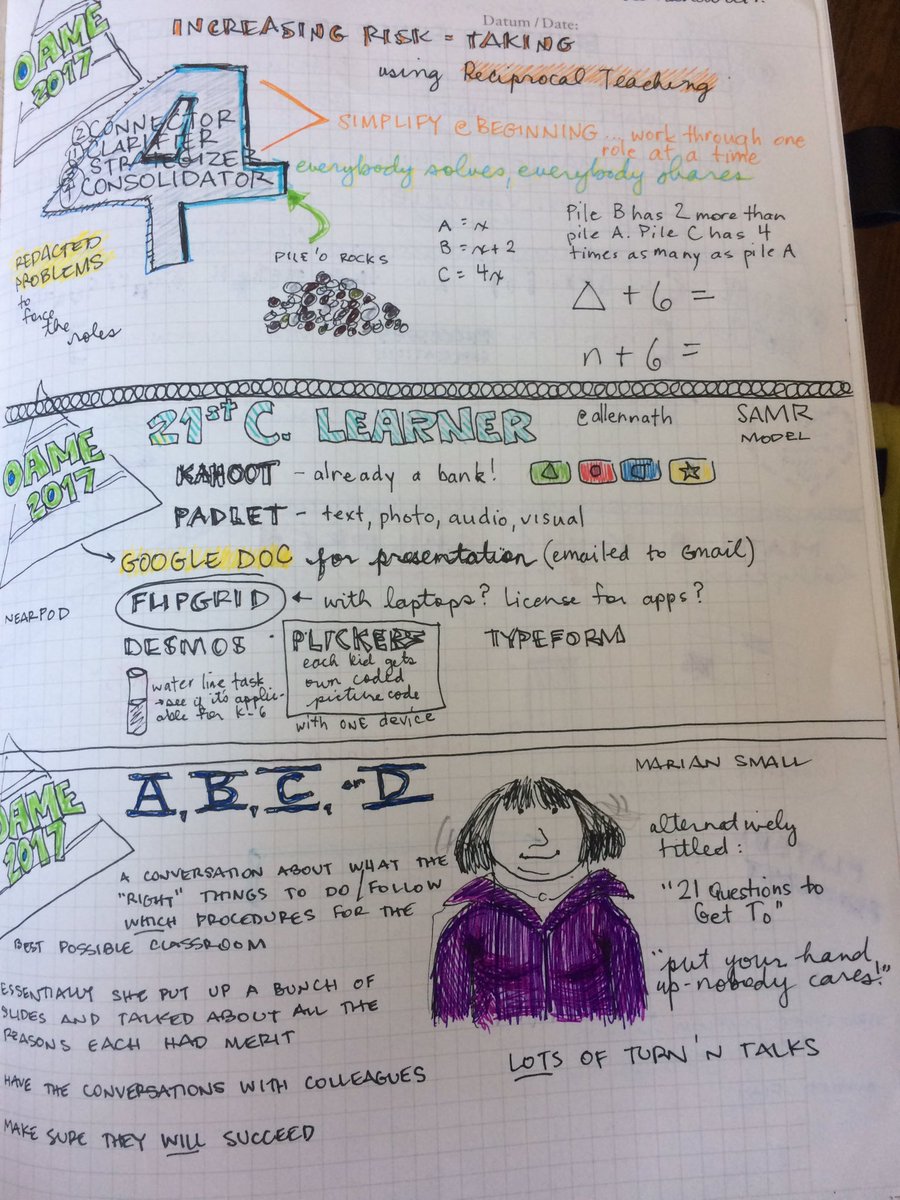 Datum / Date:
OAME
2017
INCREASING RISK - TAKING
using Reciprocal Teaching
4
② CONNECTOR
① CLARIFIER
③ STRATEGIZER
④ CONSOLIDATOR
SIMPLIFY @ BEGINNING... work through one
role at a time
everybody solves, everybody shares
REDACTED
PROBLEMS
to
force
the
roles
PILE 'O ROCKS
A = x
B = x+2
C = 4x
Pile B has 2 more than
pile A. Pile C has 4
times as many as pile A
△ + 6 =
n + 6 =
OAME
2017
21st C. LEARNER
@allennath
SAMR
MODEL
KAHOOT - already a bank!
PADLET - text, photo, audio, visual
GOOGLE DOC for presentation (emailed to Gmail)
NEARPOD
FLIPGRID ← with laptops? License for apps?
DESMOS
water line task
→ see if it's applic-
able for K-6
PLICKERS
each kid gets
own coded
picture code
with ONE device
TYPEFORM
OAME
2017
A, B, C, or D
MARIAN SMALL
A CONVERSATION ABOUT WHAT THE
"RIGHT" THINGS TO DO / FOLLOW
WHICH PROCEDURES FOR THE
BEST POSSIBLE CLASSROOM
alternatively
titled:
"21 Questions to
Get To"
"put your hand
up - nobody cares!"
ESSENTIALLY SHE PUT UP A BUNCH OF
SLIDES AND TALKED ABOUT ALL THE
REASONS EACH HAD MERIT
LOTS OF TURN 'N TALKS
HAVE THE CONVERSATIONS WITH COLLEAGUES
MAKE SURE THEY WILL SUCCEED